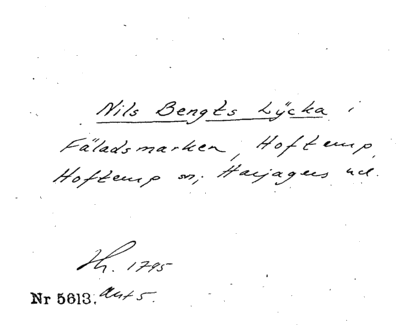 Nils Bengts Lÿcka i
Fäladsmarken, Hoftemp,
Hoftemp sn; Harjagers hd.
Th. 1795
Nr 5613. Ant 5.